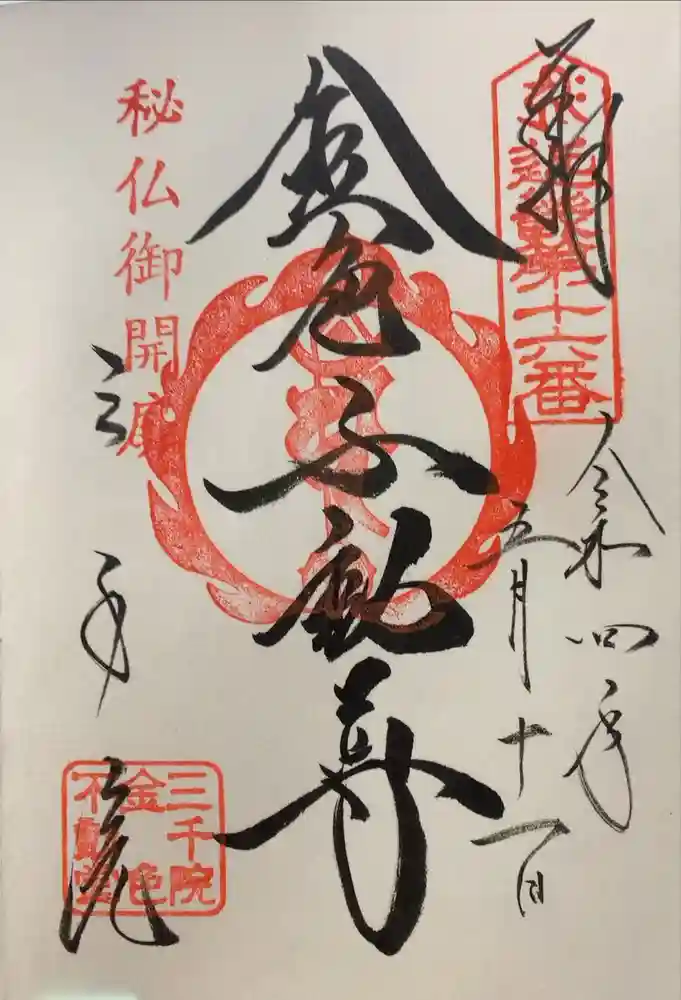 奉拝
近畿第十六番
令和四年
五月十一日
金色不動尊
秘仏御開扉
三千院
三千院
金色
不動堂